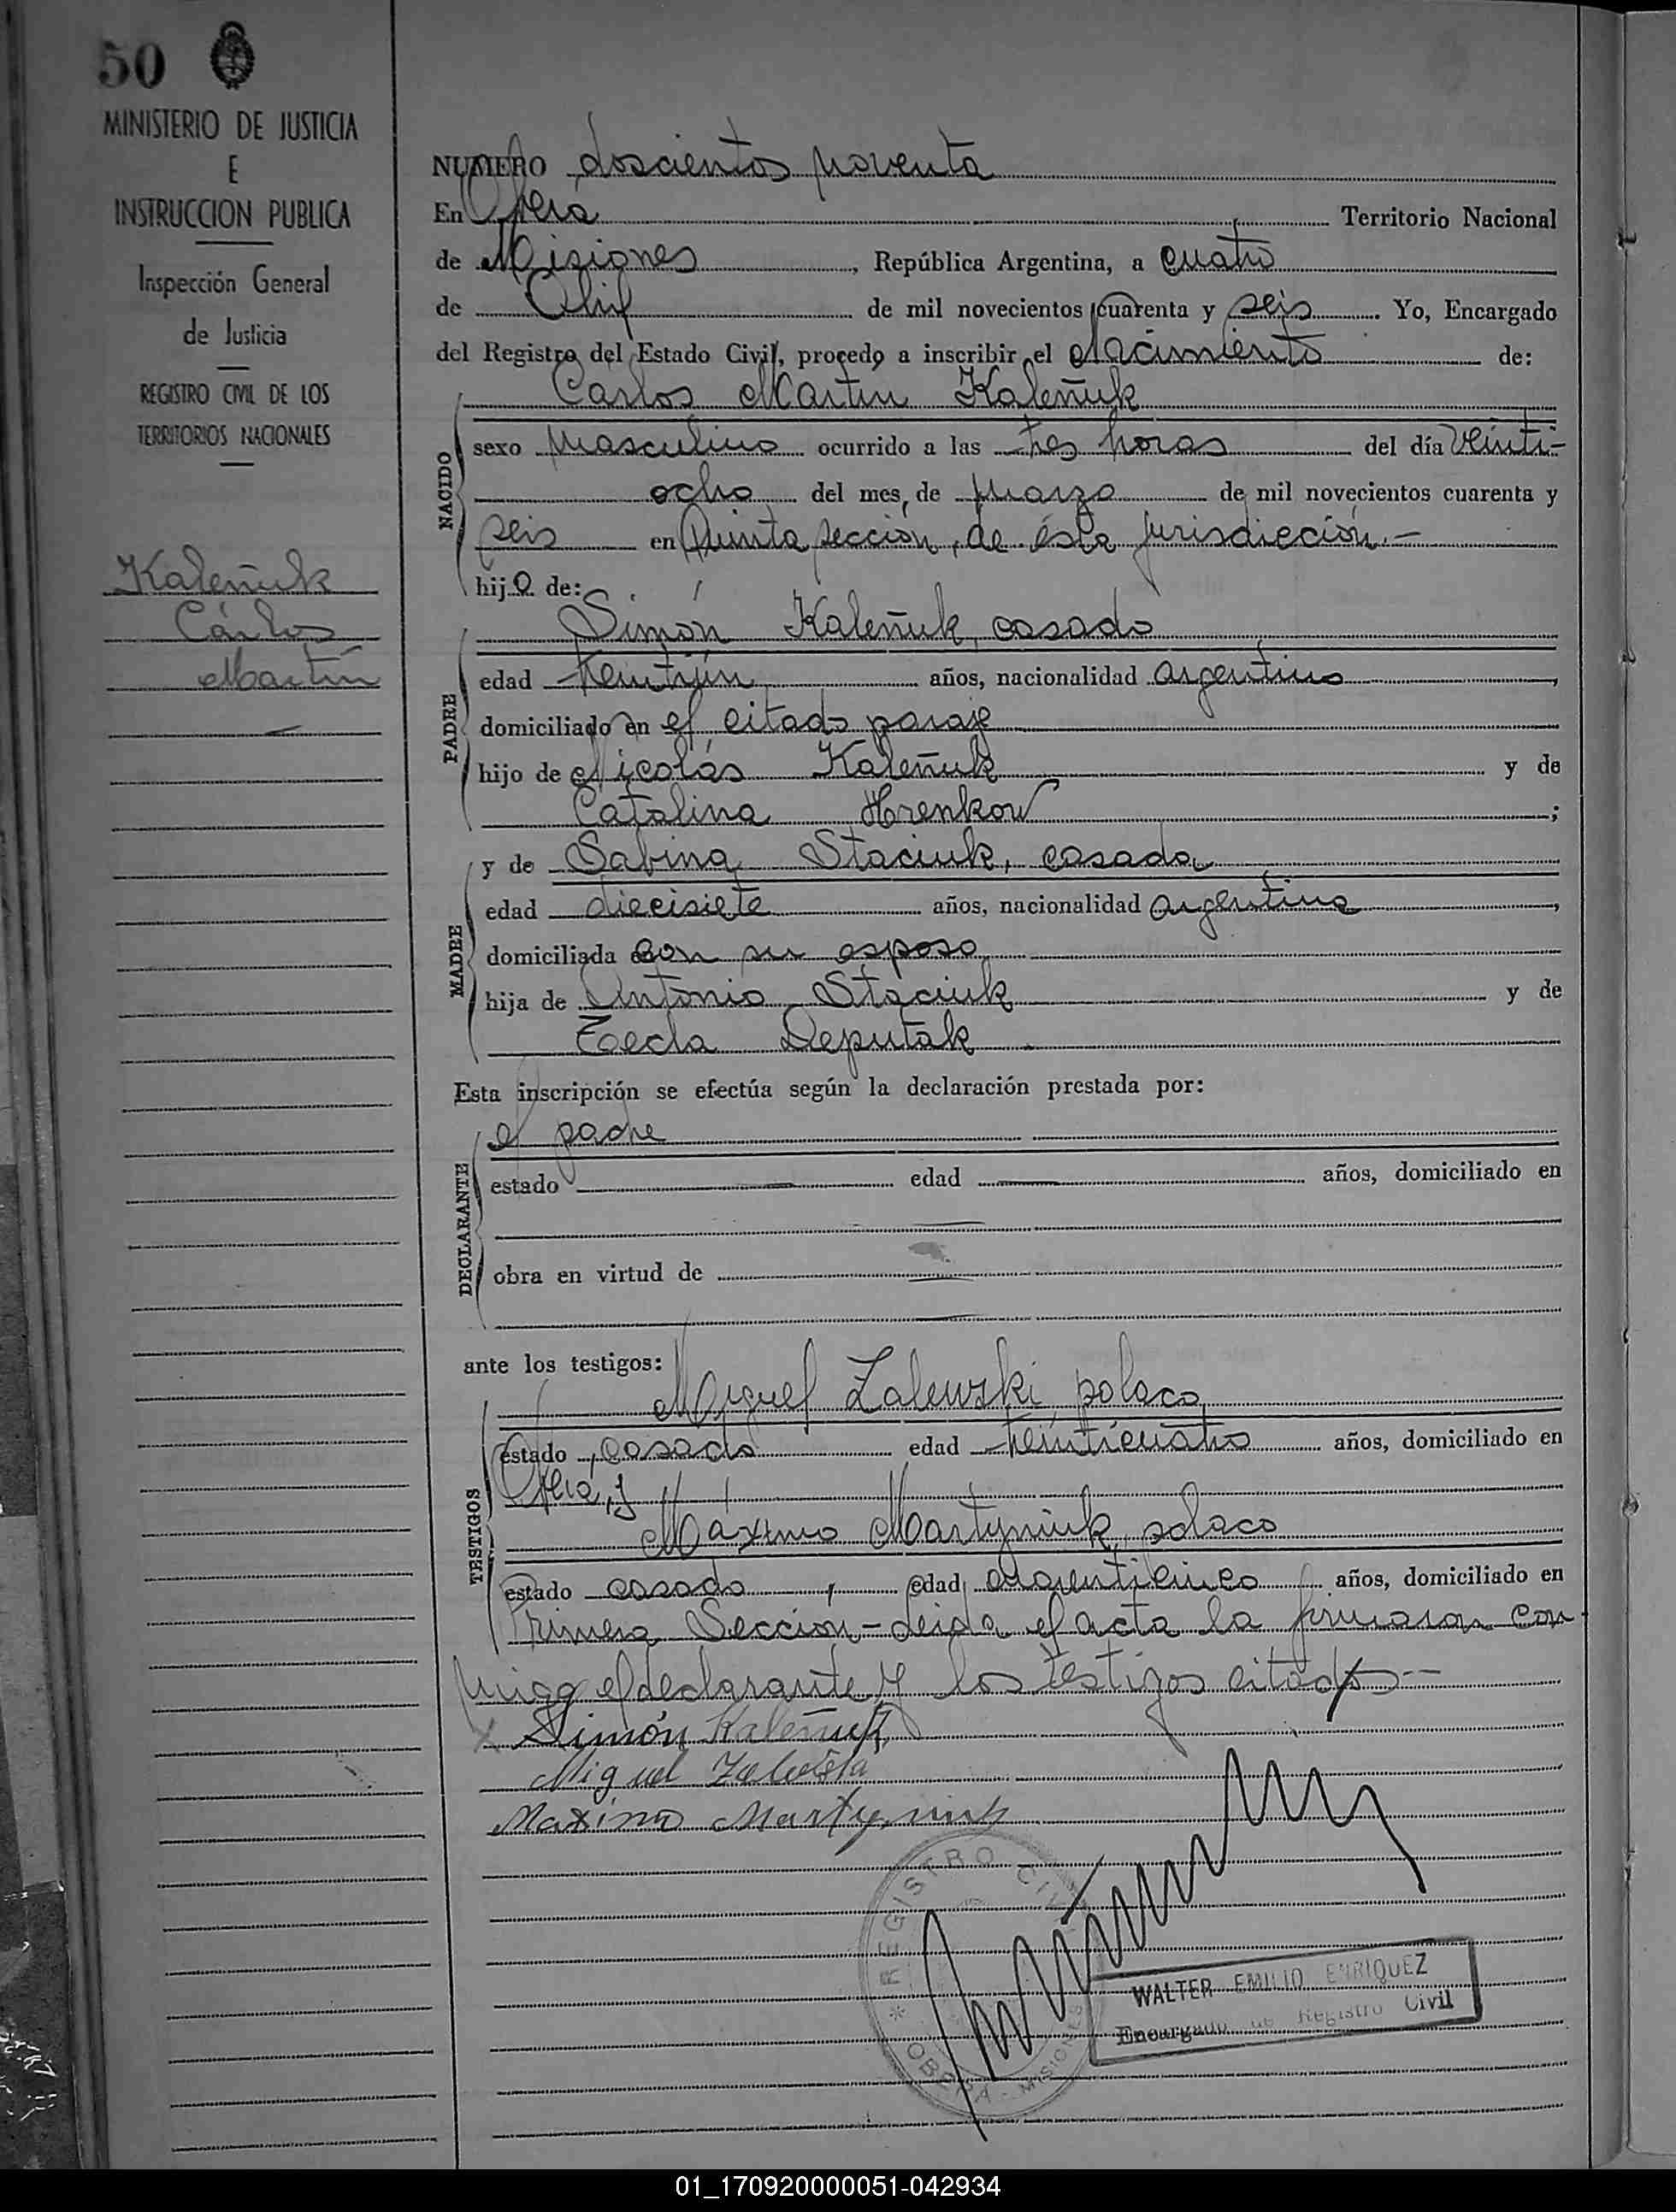 50
MINISTERIO DE JUSTICIA
E
INSTRUCCION PUBLICA
Inspección General
de Justicia
REGISTRO CIVIL DE LOS
TERRITORIOS NACIONALES
Kaleñuk
Cárlos
Martín
NUMERO doscientos noventa
En Oberá Territorio Nacional
de Misiones, República Argentina, a cuatro
de Abril de mil novecientos cuarenta y seis. Yo, Encargado
del Registro del Estado Civil, procedo a inscribir el Nacimiento de:
Carlos Martín Kaleñuk
NACIDO
sexo masculino ocurrido a las tres horas del día veinti-
ocho del mes de marzo de mil novecientos cuarenta y
seis en Quinta sección, de ésta jurisdicción.-
hijo de:
PADRE
Simón Kaleñuk, casado
edad años, nacionalidad argentino
domiciliado en el citado paraje
hijo de Nicolás Kaleñuk y de
Catalina Hrenkow;
MADRE
y de Sabina Staciuk, casada
edad diecisiete años, nacionalidad argentina,
domiciliada con su esposo
hija de Antonio Staciuk y de
Tecla Deputak
Esta inscripción se efectúa según la declaración prestada por:
DECLARANTE
el padre
estado edad años, domiciliado en
obra en virtud de
ante los testigos:
TESTIGOS
Miguel Zalewski polaco
estado casado edad años, domiciliado en
Oberá, y
Máximo Martyniuk, polaco
estado casado, edad cuarenticinco años, domiciliado en
Primera Sección - Leida el acta la firmaron con
migo el declarante y los testigos citados--
Simón Kaleñuk
Miguel
Maximo Martyniuk
REGISTRO CIVIL
OBERA - MISIONES
WALTER EMILIO ENRIQUEZ
Encargado de Registro Civil
01_170920000051-042934